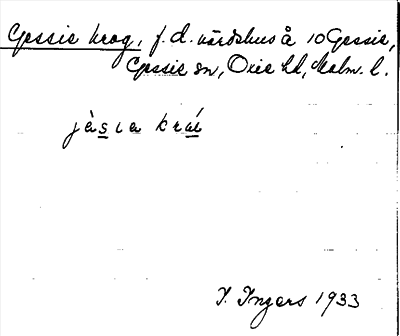 Gessie krog, f.d. värdshus å 10 Gessie,
Gessie sn, Oxie hd, Malm. l.
jàsıa kraí
I. Ingers 1933